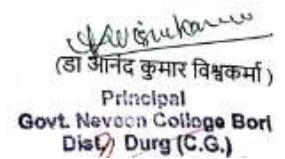 (डा आनंद कुमार विश्वकर्मा)
Principal
Govt. Naveen College Bori
Dist, Durg (C.G.)